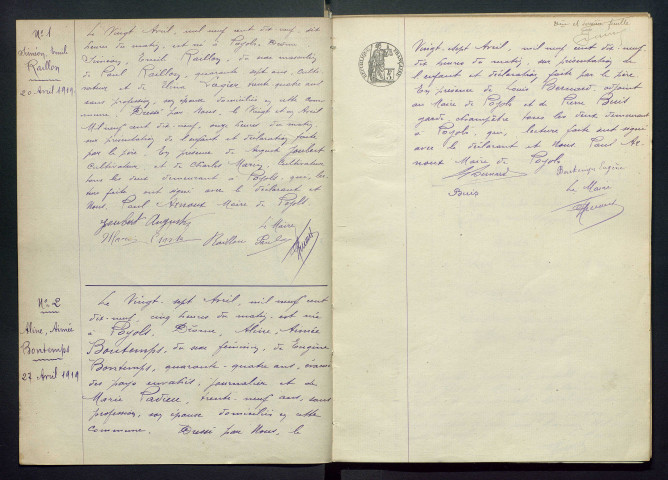 N° 1
Siméon, Emile
Raillon
20 Avril 1919
Le Vingt Avril, mil neuf cent dix-neuf, dix
heures du matin, est né à Poyols, Drôme
Siméon, Emile Raillon, du sexe masculin
de Paul Raillon, quarante sept ans, culti-
vateur et de Lagier, trente quatre ans
sans profession, son épouse domiciliés en cette com-
mune. Dressé par Nous, le Vingt et un Avril
mil neuf cent dix-neuf, onze heures du matin
sur présentation de l'enfant et déclaration faite
par le père. En présence de Auguste Joubert
cultivateur et de Charles Marcy, cultivateur
tous les deux demeurant à Poyols, qui, lec-
ture faite ont signé avec le déclarant et
Nous, Paul Arnoux Maire de Poyols.
Joubert Auguste
Le Maire
Raillon Paul
Arnoux
N° 2
Aline, Aimée
Bontemps
27 Avril 1919
Le Vingt-sept Avril, mil neuf cent
dix-neuf, cinq heures du matin, est née
à Poyols, Drôme, Aline, Aimée
Bontemps, du sexe féminin, de Eugène
Bontemps, quarante-quatre ans, évacué
des pays envahis, journalier et de
Marie Padieu, trente-neuf ans, sans
profession, son épouse domiciliés en cette
commune. Dressé par Nous, le
et dernier feuille
Vingt-sept Avril, mil neuf cent dix-neuf
dix heures du matin, sur présentation de
l'enfant et déclaration faite par le père.
En présence de Louis Bernard, adjoint
au Maire de Poyols et de Pierre Buis
garde champêtre tous les deux demeurant
à Poyols, qui, lecture faite ont signé
avec le déclarant et Nous, Paul Ar-
noux Maire de Poyols.
Bernard
Bontemps Eugène
Buis
Le Maire
Arnoux